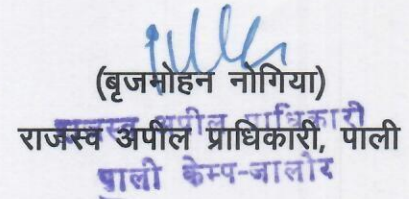 (बृजमोहन नोगिया)
राजस्व अपील प्राधिकारी
राजस्व अपील प्राधिकारी, पाली
पाली केम्प-जालोर